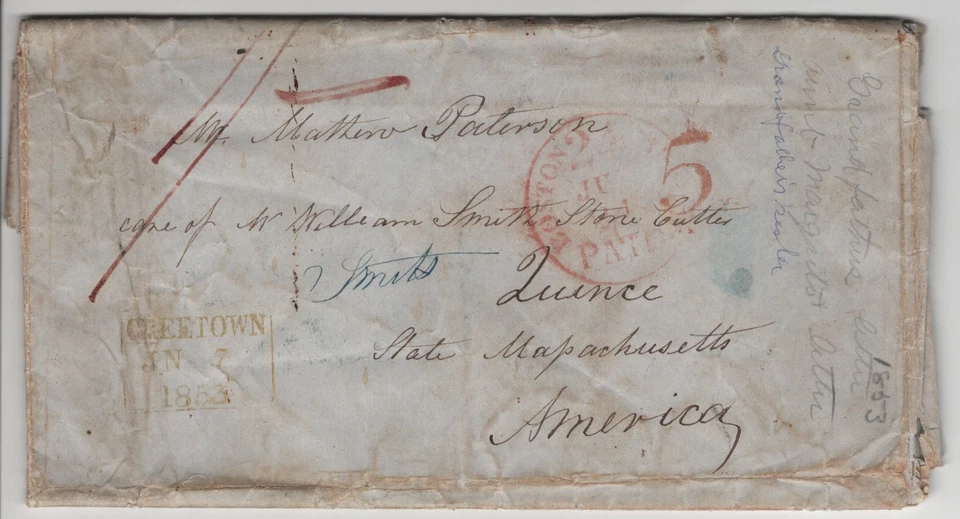 Mr. Mathew Paterson
care of Mr William Smith Stone Cutter
Smith
Quince
State Massachusetts
America
CREETOWN
JN 7
1853
24
JU
PAID
5
Grandfathers
aunt Margaret
grandfather's sister
1853